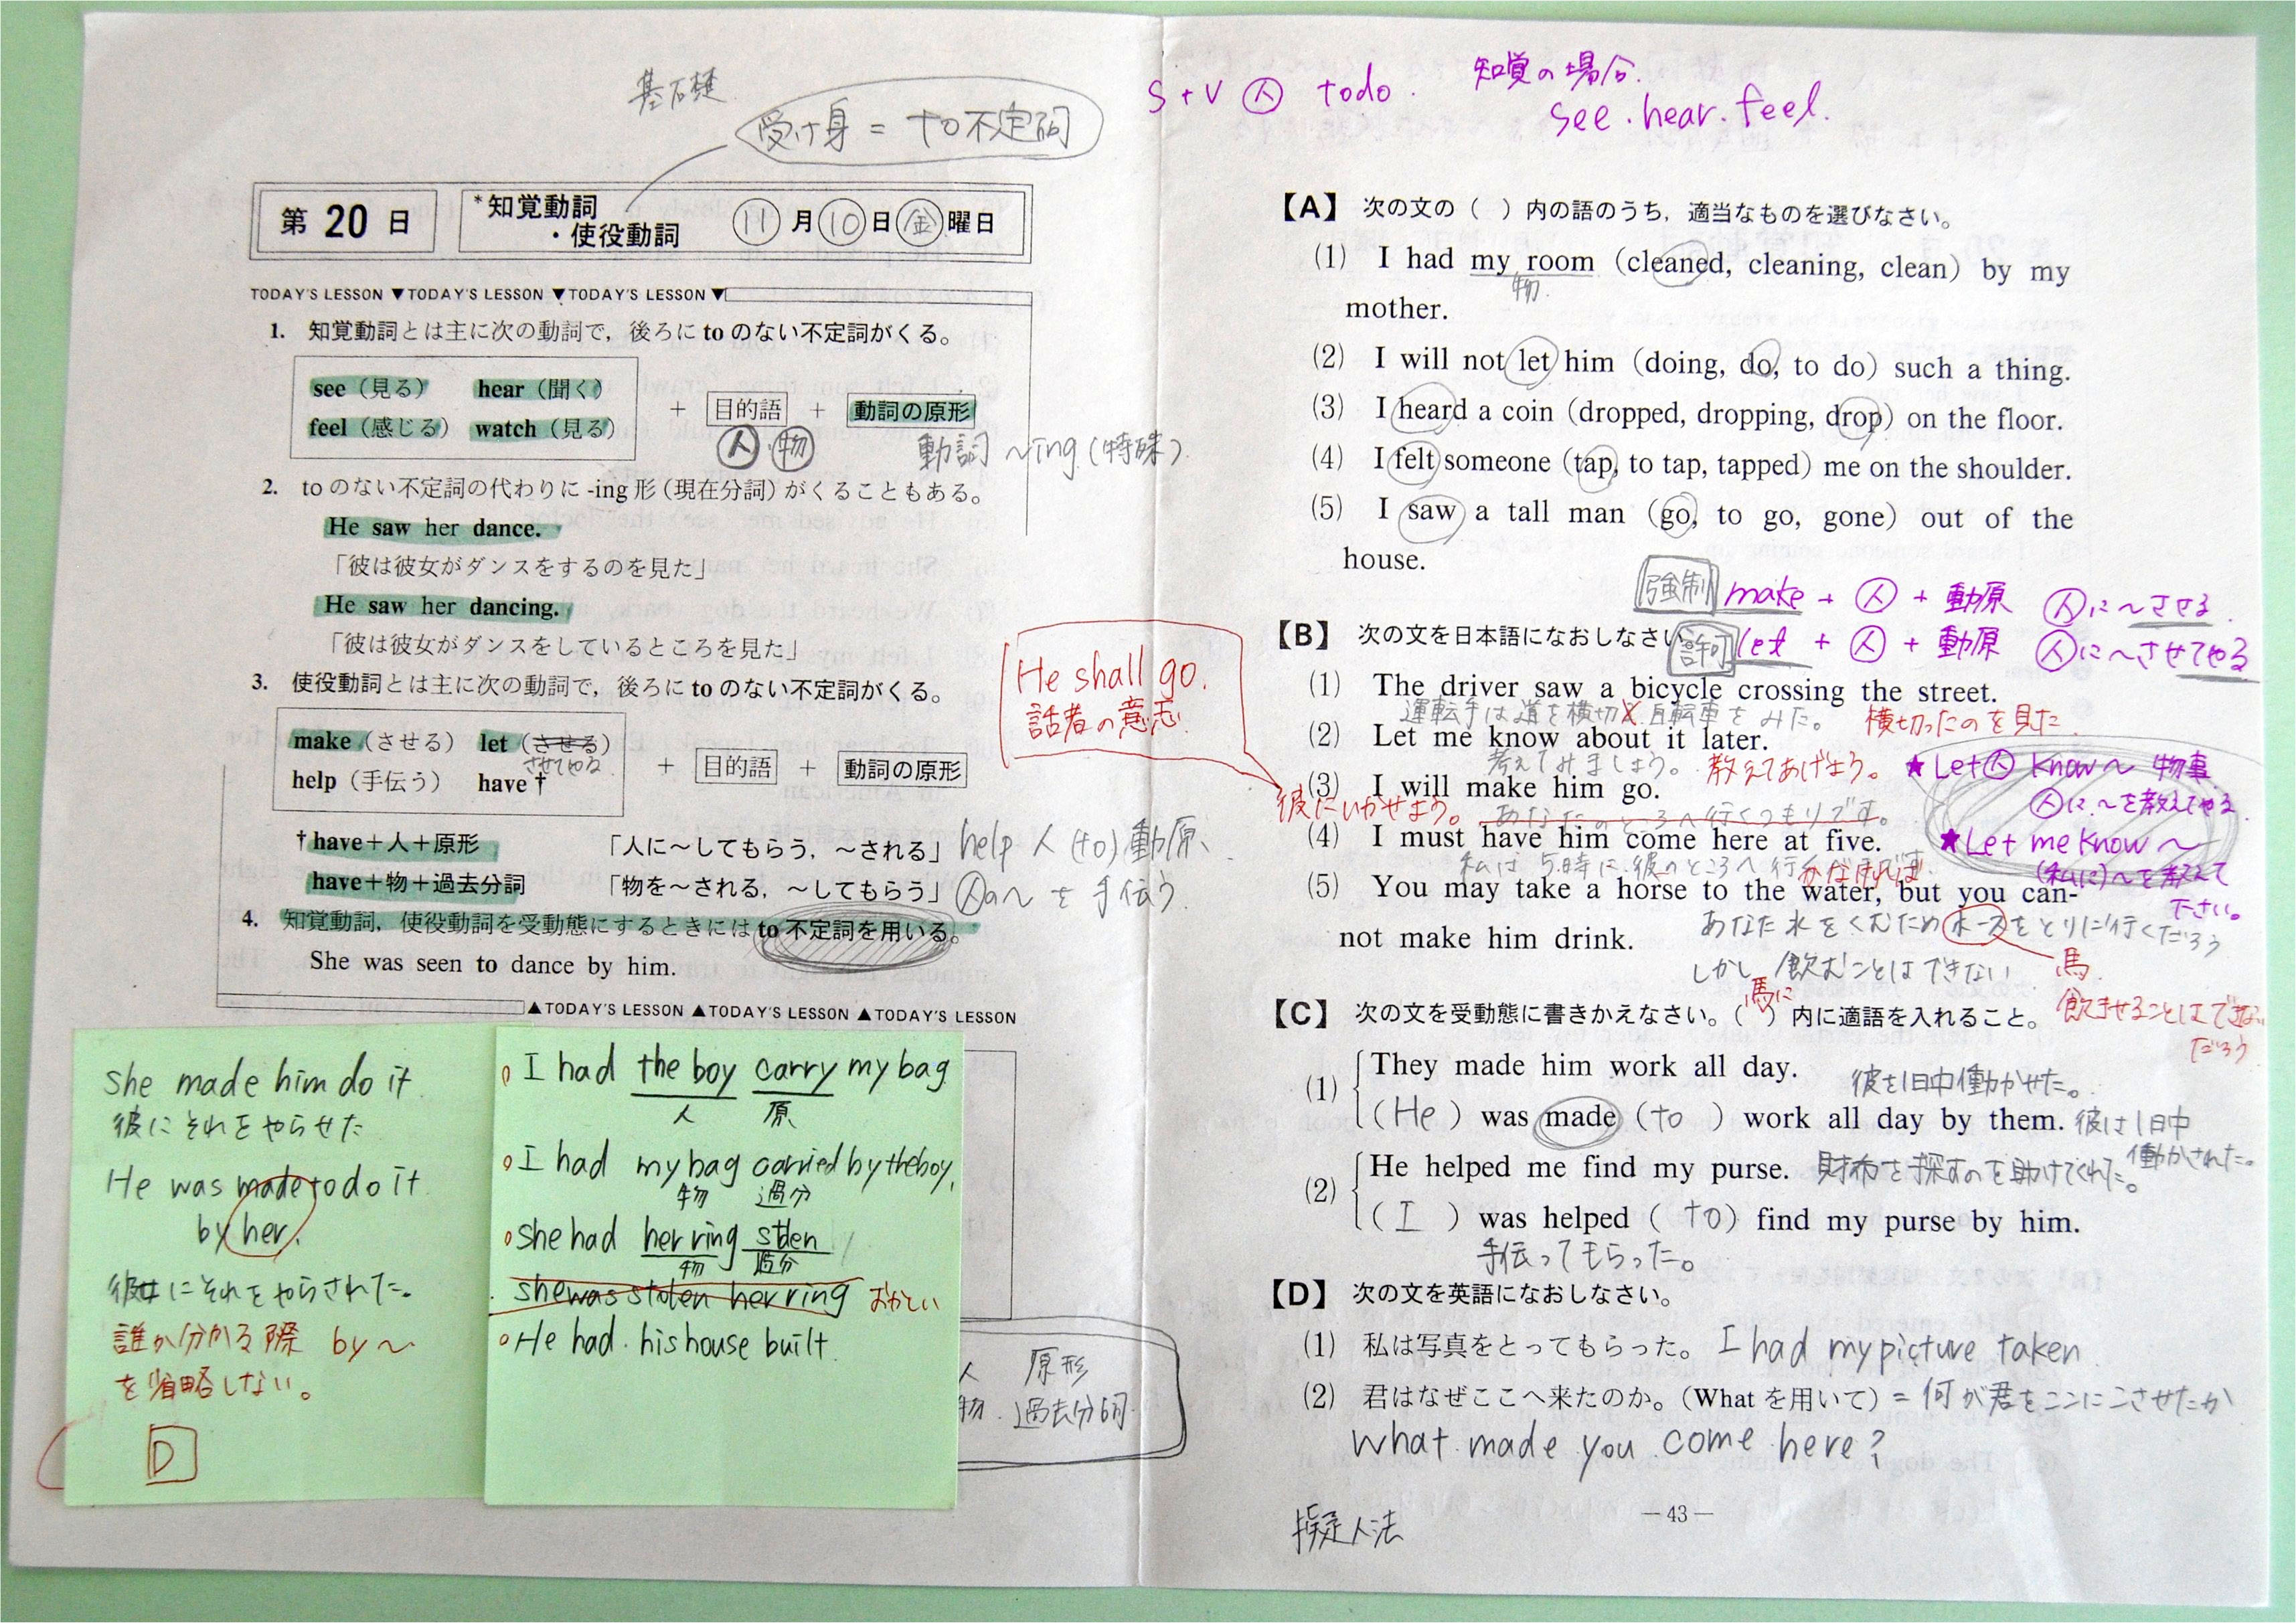 基礎
受け身 = to不定詞
第 20 日
*知覚動詞
・使役動詞
11月10日金曜日
TODAY'S LESSON ▼TODAY'S LESSON ▼TODAY'S LESSON ▼
1. 知覚動詞とは主に次の動詞で，後ろに to のない不定詞がくる。
see（見る） hear（聞く）
feel（感じる） watch（見る）
+ 目的語 + 動詞の原形
人 物
動詞 ~ing (特殊)
2. to のない不定詞の代わりに -ing 形（現在分詞）がくることもある。
He saw her dance.
「彼は彼女がダンスをするのを見た」
He saw her dancing.
「彼は彼女がダンスをしているところを見た」
3. 使役動詞とは主に次の動詞で，後ろに to のない不定詞がくる。
make（させる） let（させる）
させてやる
help（手伝う） have†
+ 目的語 + 動詞の原形
†have＋人＋原形 「人に～してもらう，～される」
have＋物＋過去分詞 「物を～される，～してもらう」
help 人 (to) 動原、
人の～を手伝う
4. 知覚動詞，使役動詞を受動態にするときには to 不定詞を用いる。
She was seen to dance by him.
▲TODAY'S LESSON ▲TODAY'S LESSON ▲TODAY'S LESSON
she made him do it
彼にそれをやらせた
He was made to do it
by her.
彼女にそれをやらされた。
誰か分かる際 by～
を省略しない。
D
I had the boy carry my bag
人 原
I had my bag carried by the boy.
物 過分
she had her ring stolen
物 過分
she was stolen her ring おかしい
He had his house built.
人 原形
物 過去分詞
S+V 人 to do.
知覚の場合.
see.hear.feel.
【A】 次の文の（ ）内の語のうち，適当なものを選びなさい。
(1) I had my room (cleaned, cleaning, clean) by my
物.
mother.
(2) I will not let him (doing, do, to do) such a thing.
(3) I heard a coin (dropped, dropping, drop) on the floor.
(4) I felt someone (tap, to tap, tapped) me on the shoulder.
(5) I saw a tall man (go, to go, gone) out of the
house.
強制 make + 人 + 動原 人に～させる.
許可 let + 人 + 動原 人に～させてやる
【B】 次の文を日本語になおしなさい
(1) The driver saw a bicycle crossing the street.
運転手は道を横切る自転車をみた。 横切ったのを見た
(2) Let me know about it later.
考えてみましょう。 教えてあげよう。
★Let 人 know～ 物事
人に～を教えてやる
★Let me know～
(私に)～を教えて
下さい。
He shall go.
話者の意志
(3) I will make him go.
彼にいかせよう。 あなたのところへ行くつもりです。
(4) I must have him come here at five.
私は5時に彼のところへ行かなければ
(5) You may take a horse to the water, but you can-
あなた水をくむためホースをとりに行くだろう
not make him drink.
しかし飲むことはできない
馬
馬に
飲ませることはできない
だろう
【C】 次の文を受動態に書きかえなさい。（ ）内に適語を入れること。
(1) They made him work all day.
彼を1日中働かせた。
( He ) was made ( to ) work all day by them.
彼は1日中
働かされた。
(2) He helped me find my purse.
財布を探すのを助けてくれた。
( I ) was helped ( to ) find my purse by him.
手伝ってもらった。
【D】 次の文を英語になおしなさい。
(1) 私は写真をとってもらった。 I had my picture taken
(2) 君はなぜここへ来たのか。(What を用いて) = 何が君をここにこさせたか
What made you come here?
擬人法
—43—